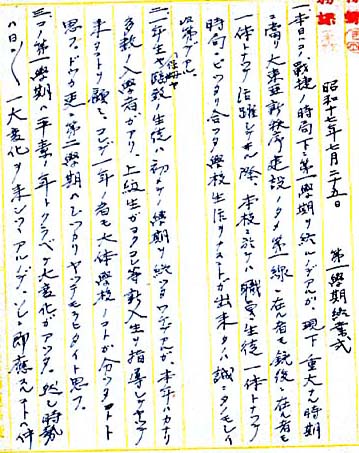 昭和十七年七月二十五日　第一學期終業式
一本日コノ戰捷ノ時局下ニ第一學期ヲ終ルノデアルガ、現下重大ナル時期
ニ當リ大東亜新秩序建設ノタメ第一線ニ在ル者モ銃後ニ在ル者モ
一体トナツテ活躍シテヰル際、本校ニ於テハ職員生徒一体トナツテ
時局ニピツタリ合フタ學校生活ヲナスコトガ出来タノハ誠ニタノモシイ
次第デアル。
二一年生ヤ 生徒ハ初メテノ學期ヲ終ツタワケデアルガ、本年ハカナリ
多数ノ入學者ガアリ、上級生ガヨクコレ等新入生ヲ指導シテヤツテ
来テヨリ、一年ノ者モ大体學校ノコトガ分ツタコトト
思フ。ドウカ更ニ第二學期ヘシツカリヤツテモラヒタイト思フ。
三コノ第一學期ハ平素ノ年トクラベテ大変化ガアツタ。然シ時勢
ハ日ニ一大変化ヲ来シツツアルノデ、ソレニ即應スルコトハ